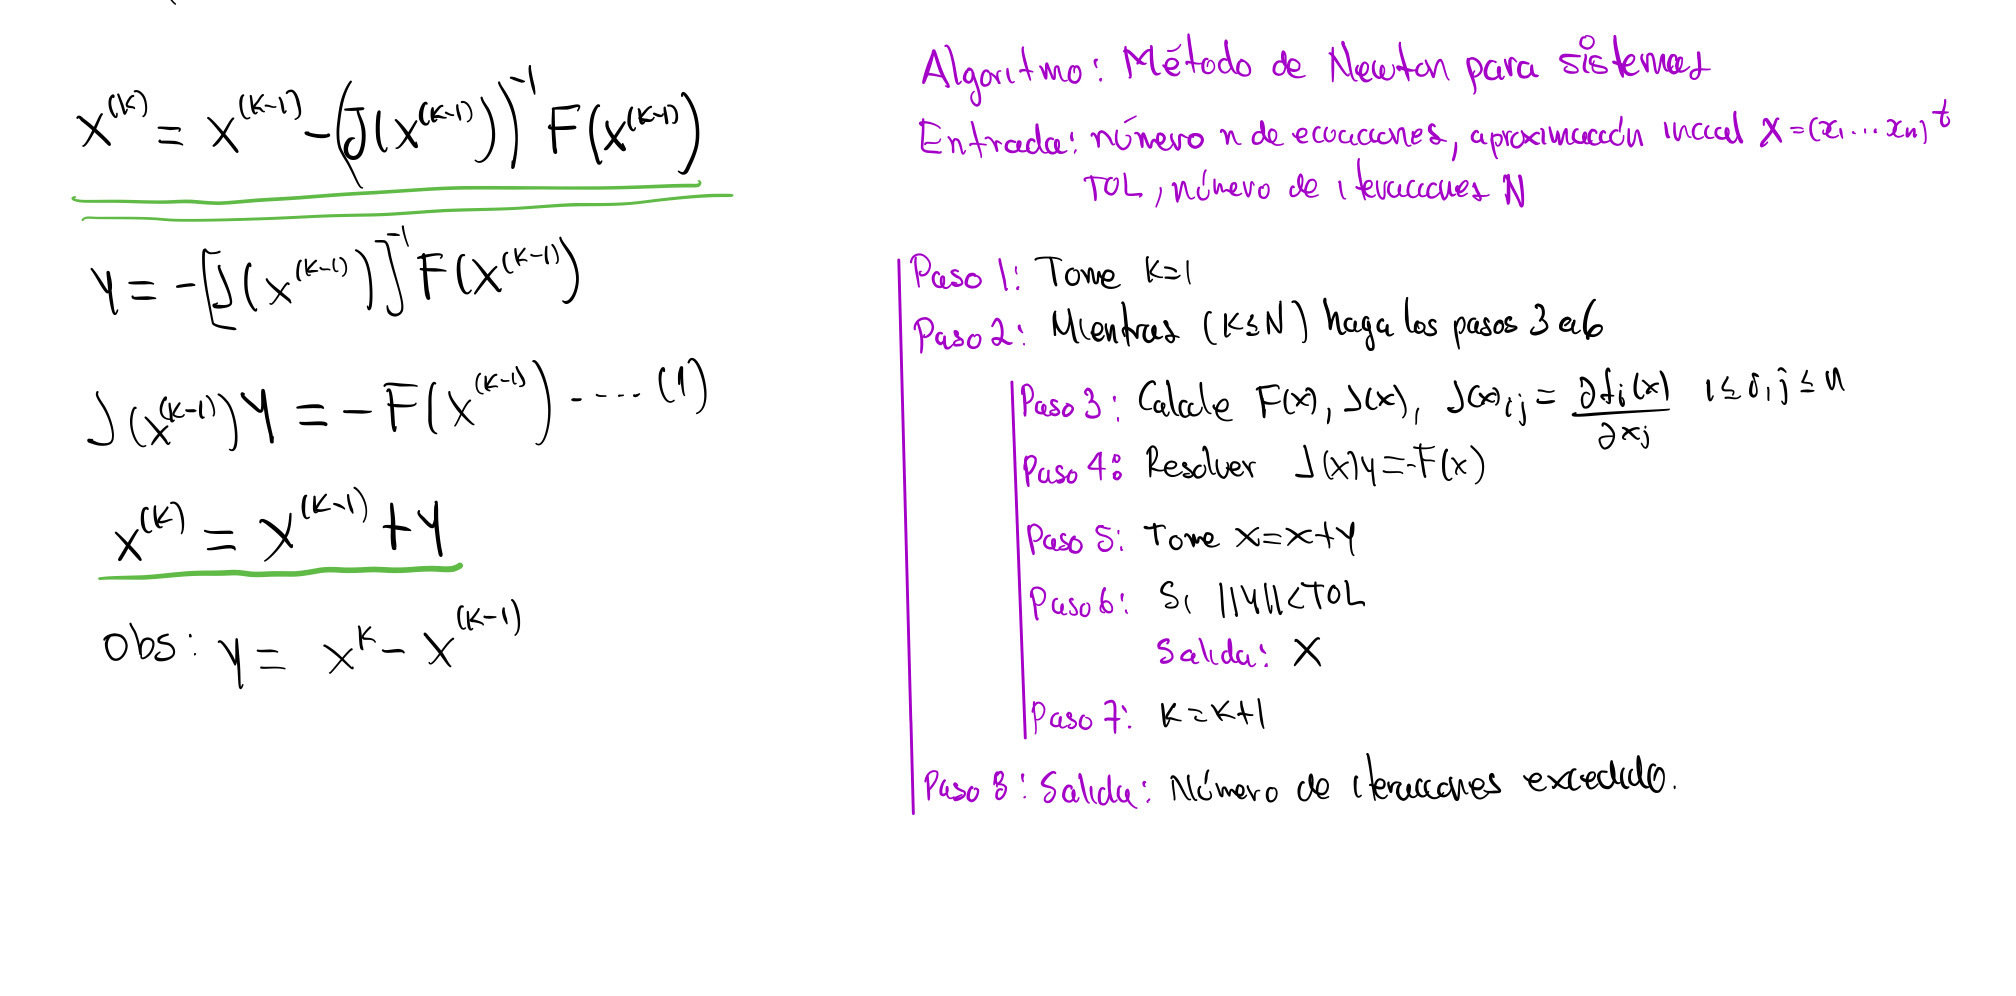 x^(k) = x^(k-1) - (J(x^(k-1)))^-1 F(x^(k-1))
Y = -[J(x^(k-1))]^-1 F(x^(k-1))
J(x^(k-1)) Y = - F(x^(k-1)) ..... (1)
x^(k) = x^(k-1) + Y
Obs: Y = x^k - x^(k-1)
Algoritmo: Método de Newton para sistemas
Entrada: número n de ecuaciones, aproximación inicial X = (x₁ ... xₙ)^t
TOL, número de iteraciones N
Paso 1: Tome k=1
Paso 2: Mientras (k≤N) haga los pasos 3 a 6
Paso 3: Calcule F(x), J(x), J(x)ij = ∂fi(x)/∂xj 1≤i,j≤n
Paso 4: Resolver J(x)y=-F(x)
Paso 5: Tome x=x+Y
Paso 6: Si ||Y||<TOL
Salida: X
Paso 7: k=k+1
Paso 8: Salida: Número de iteraciones excedido.